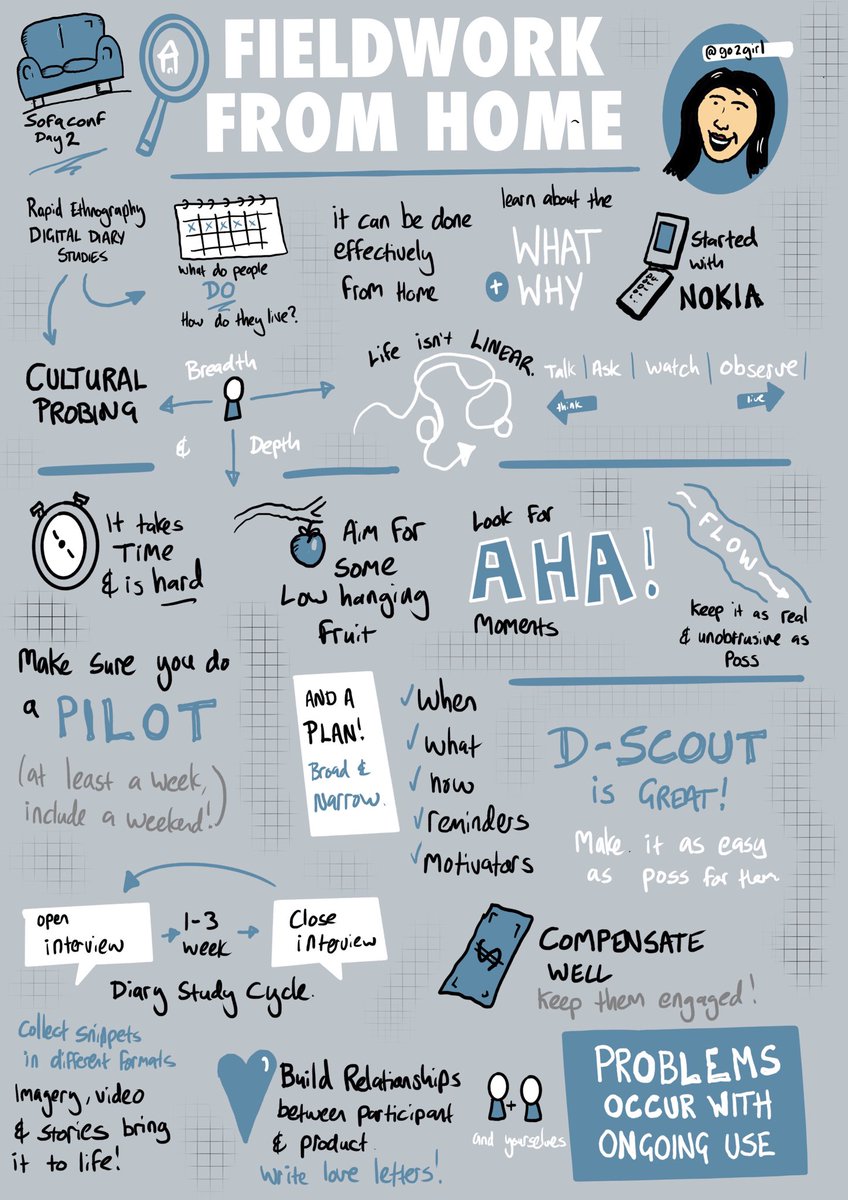 FIELDWORK
FROM HOME
@go2girl
Sofaconf
Day 2
Rapid Ethnography
DIGITAL DIARY
STUDIES
what do people
DO
How do they live?
it can be done
effectively
from Home
learn about the
WHAT
+ WHY
Started
with
NOKIA
CULTURAL
PROBING
Breadth
&
Depth
Life isn't LINEAR.
Talk | Ask | Watch | Observe |
think
live
It takes
TIME
& is hard
Aim For
Some
Low hanging
Fruit
Look For
AHA!
Moments
FLOW
keep it as real
& unobtrusive as
Poss
Make sure you do
a PILOT
(at least a week,
include a weekend!)
AND A
PLAN!
Broad &
Narrow.
✓ when
✓ what
✓ how
✓ reminders
✓ Motivators
D-SCOUT
is GREAT!
Make it as easy
as poss for them
open
interview
1-3
week
Close
interview
Diary Study Cycle.
$
COMPENSATE
WELL
keep them engaged!
Collect snippets
in different formats
Imagery, video
& stories bring
it to life!
Build Relationships
between participant
& product
Write love letters!
+
and yourselves
PROBLEMS
OCCUR WITH
ONGOING USE